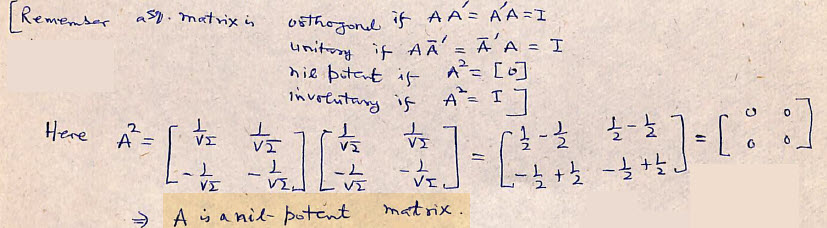 [Remember a sq. matrix is orthogonal if AA' = A'A = I
unitary if AĀ' = Ā'A = I
nil potent if A² = [0]
involutary if A² = I ]
Here A² = [1/√2 1/√2; -1/√2 -1/√2] [1/√2 1/√2; -1/√2 -1/√2] = [1/2 - 1/2 1/2 - 1/2; -1/2 + 1/2 -1/2 + 1/2] = [0 0; 0 0]
⇒ A is a nil-potent matrix.